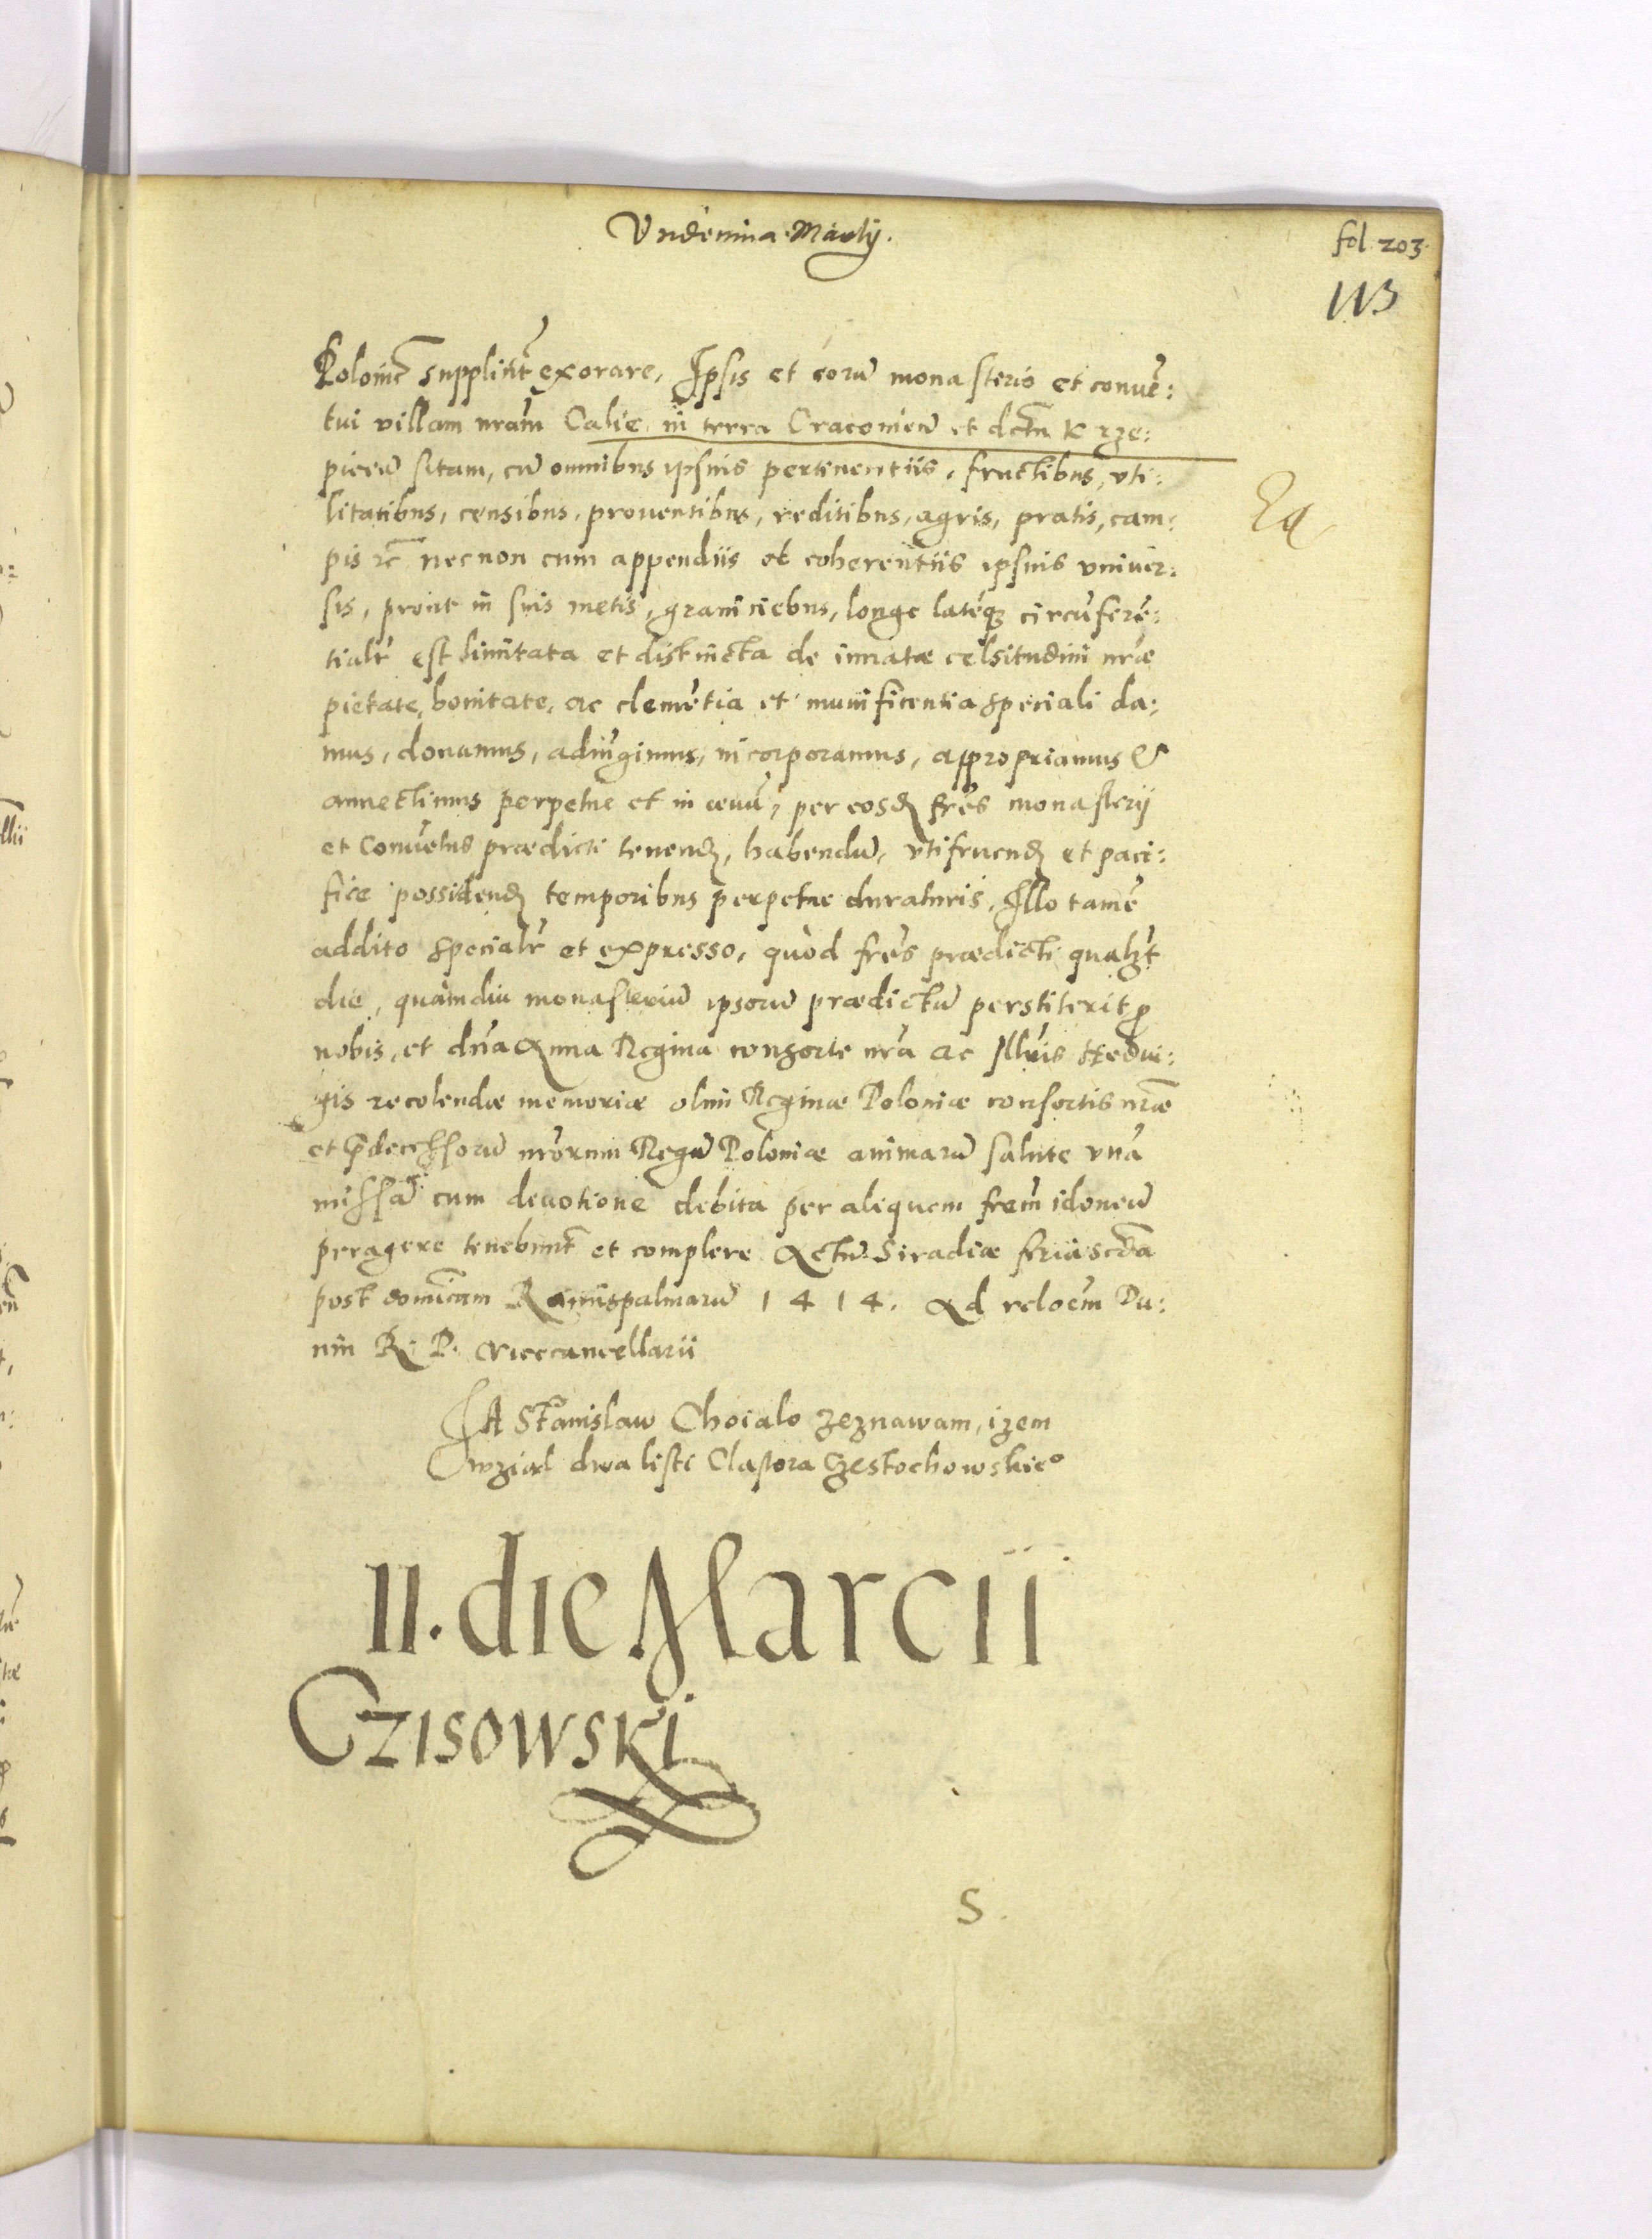 Vndecima Martij.
fol 203.
113
Poloniæ supplicit̃ exorare, Ipsis et eorũ monasterio et convẽ:
tui villam nrãm Calie in terra Cracovieñ et dctũ Krze:
piceñ sitam, cũ omnibus ipsius pertinentiis, fructibus, vti:
litatibus, censibus, proventibus, reditibus, agris, pratis, cam:
pis etc̃ necnon cum appendiis et coherentiis ipsius vniver:
sis, prout in suis metis, graniciebus, longe lateq; circũferẽ:
tialr̃ est limitata et distincta de innatæ celsitudini nrãe
pietate, bonitate, ac clemẽtia et munificentia speciali da:
mus, donamus, adiũgimus, incorporamus, appropriamus &
annectimus perpetue et in ævũ, per eosd̃ frẽs monasterij
et Convẽtus prædicti tenend̃, habendũ, vtifruend̃ et paci:
fice possidend̃ temporibus perpetue duraturis, Illo tamẽ
addito specialr̃ et expresso, quòd frẽs prædicti qualz̃t
die, quàmdiu monasteriũ ipsorũ prædictũ perstiterit p
nobis, et dña Anna Regina consorte nrã ac Illr̃is Hedvi:
gis recolendæ memoriæ olim Reginæ Poloniæ consortis nrãe
et p̃decessorũ nrõrum Regũ Poloniæ animarũ salute vnã
missã cum devotione debita per aliquem frẽm idoneũ
peragere tenebunt̃ et complere Actũ Siradiæ feria scd̃a
post domĩcam Ramispalmarũ 1414. Ad reloẽm Du:
nin R. P. vicecancellarii
JA Stanislaw Choialo zeznawam, izem
wzial dwa listi Clastora Czestochowskieo
11. die Marcii
Czisowski
S